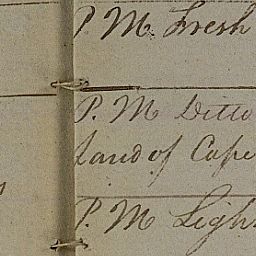 P. M. Fresh
P. M Ditto
Land of Cape
P. M Ligh